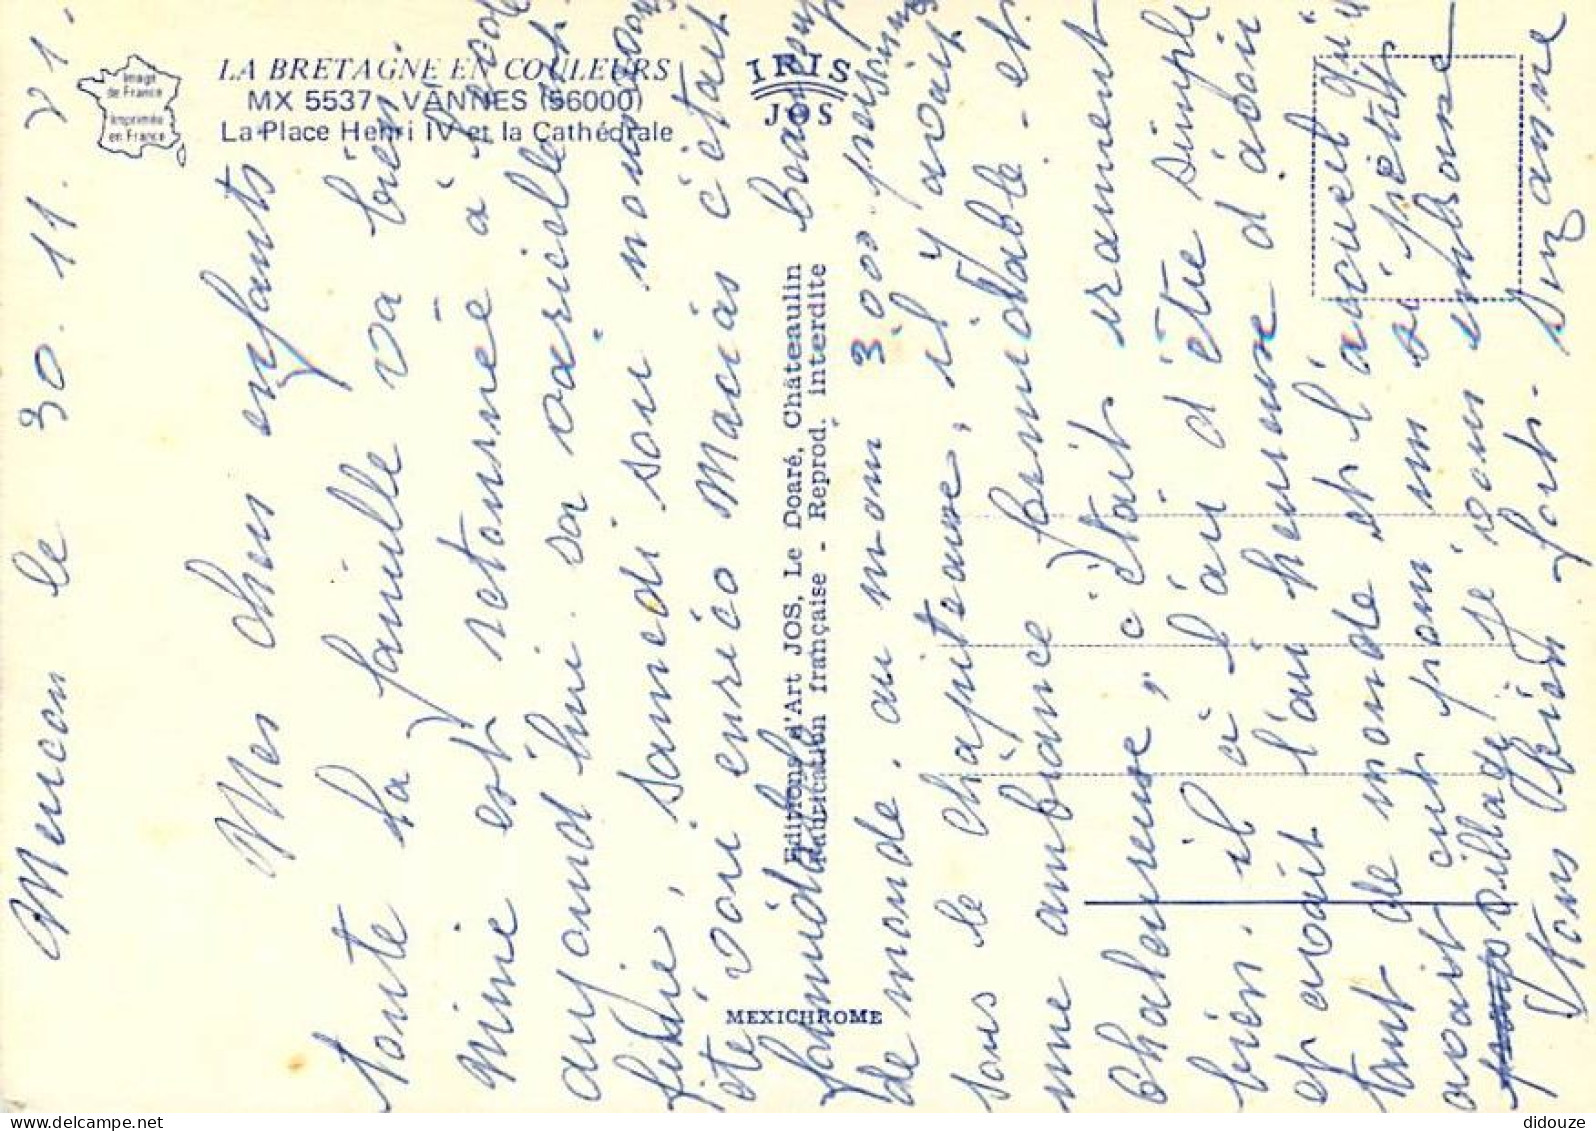 LA BRETAGNE EN COULEURS
MX 5537 - VANNES (56000)
La Place Henri IV et la Cathédrale
Image
de France
Imprimée
en France
IRIS
JOS
Editions d'Art JOS, Le Doaré, Châteaulin
Fabrication française - Reprod. interdite
MEXICHROME
le 30.11.
Mes chers enfants
toute la famille va bien.
mimie est retournée à l'école
aujourd'hui. sa varicelle est
finie, samedi soir nous avons
été voir enrico Macias c'était
formidable beaucoup
de monde. au moins 3.000 personnes
sous le chapiteau, il y avait
une ambiance formidable - et
chaleureuse, c'était vraiment
bien. il a l'air d'être simple
et avait l'air heureux d'avoir
tant de monde et l'accueil qu'il
avait eut pour un si petit
village, je vous embrasse
tous bien fort. Suzanne
didouze